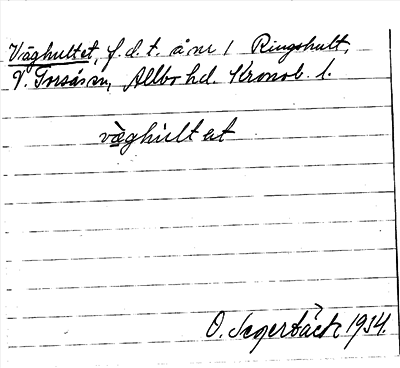 Väghultet, f. d. t. å nr 1 Ringshult,
V. Torsås sn, Allbo hd. Kronob. l.
vàghult et
O. Segerbäck 1934.